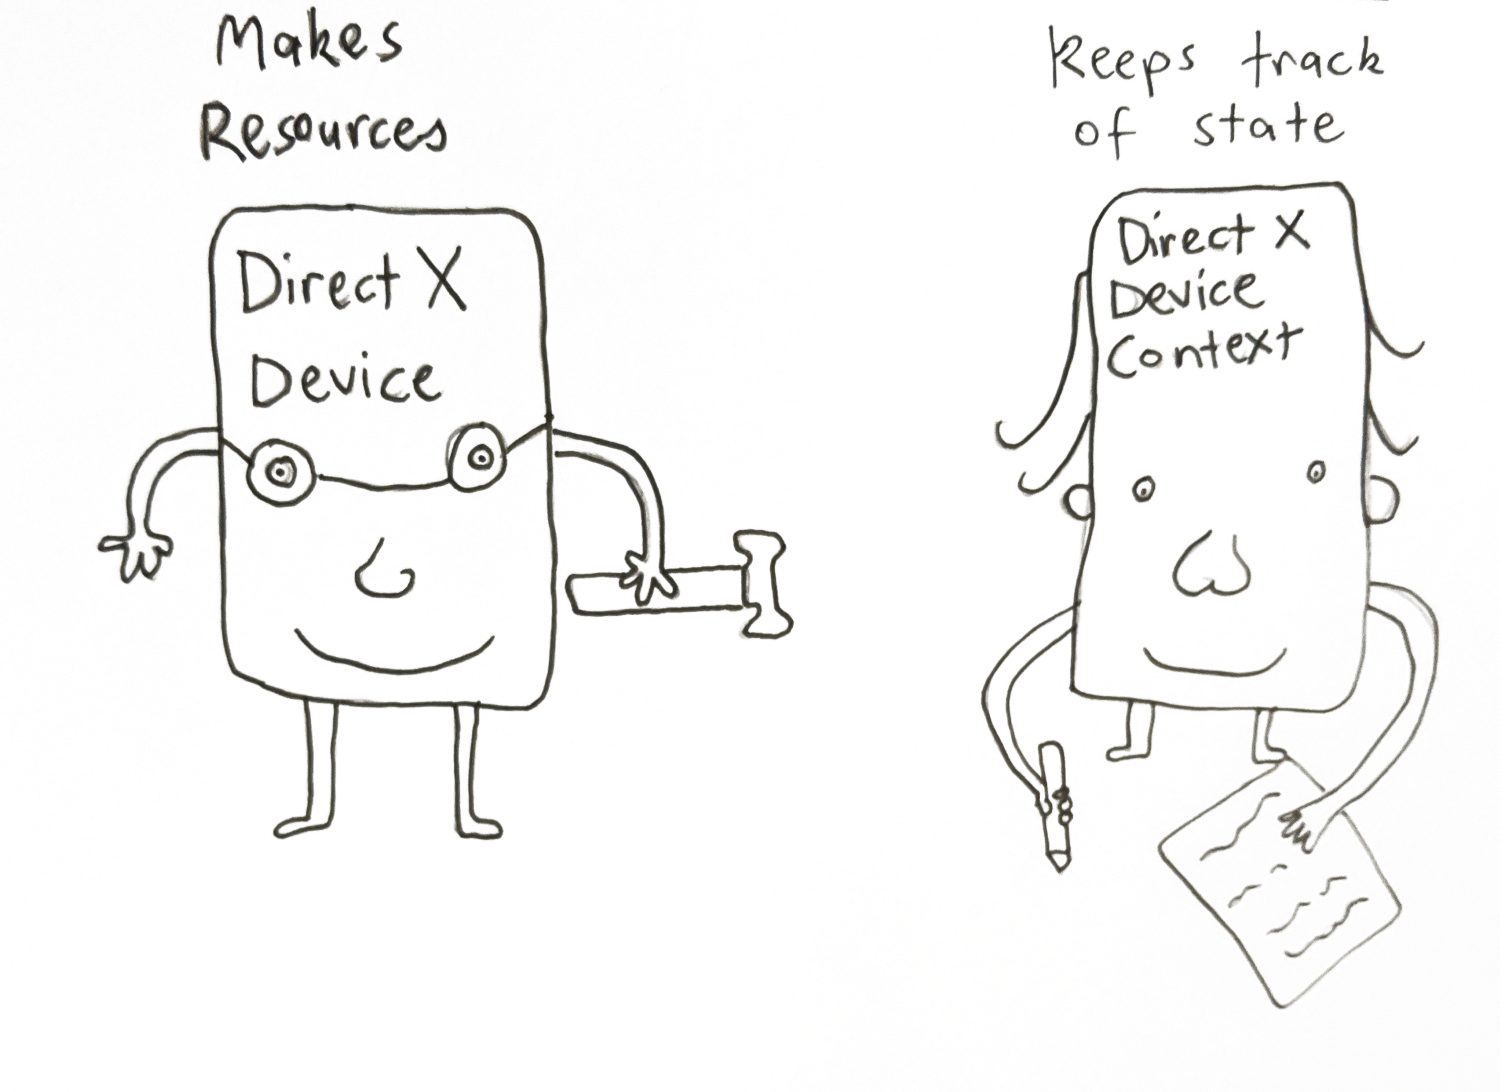 Makes
Resources
Direct X
Device
Keeps track
of state
Direct X
Device
Context